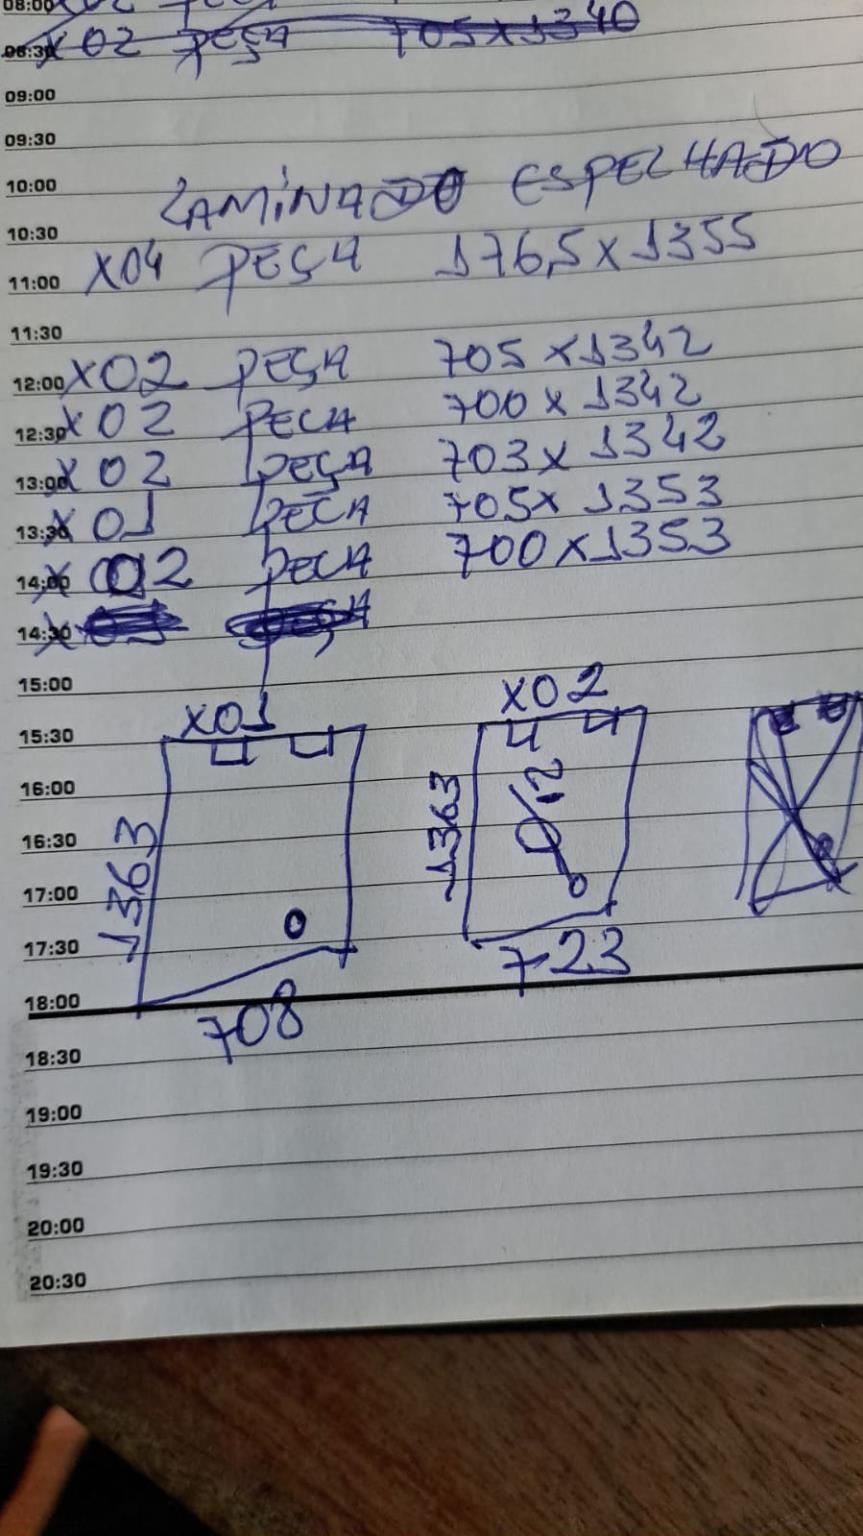 08:00
08:30 X 02 PEÇA 705 X 1340
09:00
09:30
10:00 LAMINADO ESPELHADO
10:30
11:00 X04 PEÇA 176,5 X 1355
11:30
12:00 X02 PEÇA 705 X 1342
12:30 X 02 PECA 700 X 1342
13:00 X 02 PEÇA 703 X 1342
13:30 X 01 PECA 705 X 1353
14:00 X 02 PECA 700 X 1353
14:30
15:00
15:30 X01 X02
16:00
16:30 1363 1363
17:00
17:30
18:00 708 723
18:30
19:00
19:30
20:00
20:30